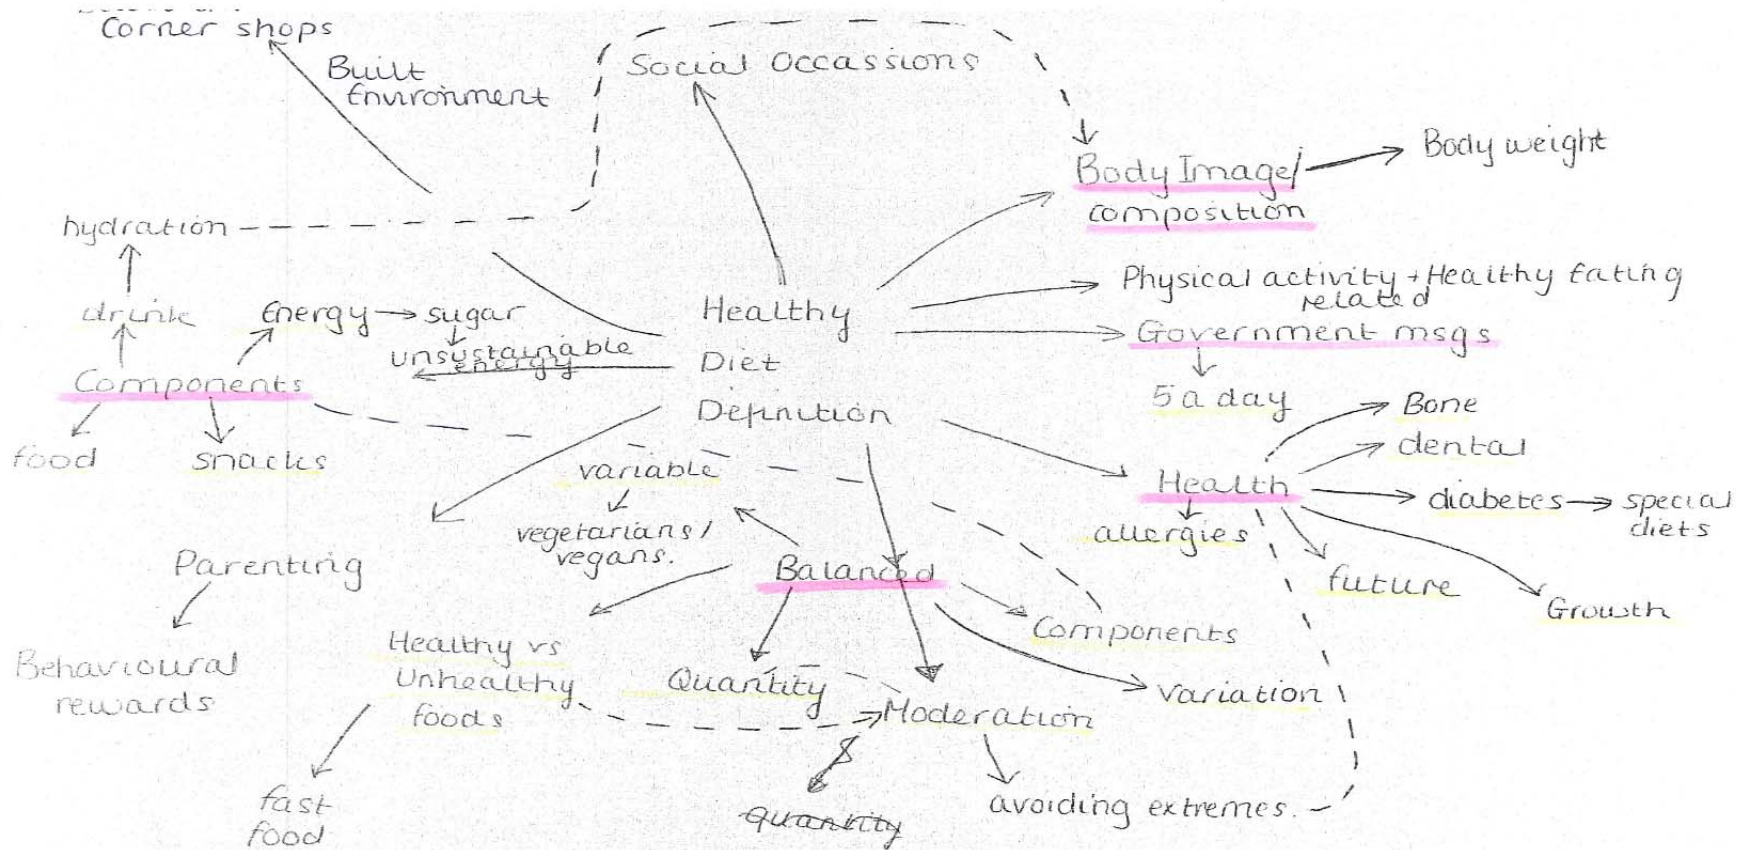 Corner shops
Built
Environment
Social Occassions
Body Image/
composition
Body weight
hydration
drink
Energy
sugar
unsustainable
energy
Components
food
snacks
Healthy
Diet
Definition
Physical activity + Healthy Eating
related
Government msgs
5 a day
Bone
dental
Health
diabetes
special
diets
allergies
future
Growth
variable
vegetarians/
vegans.
Balanced
Components
variation
Parenting
Behavioural
rewards
Healthy vs
Unhealthy
foods
Quantity
Moderation
fast
food
quantity
avoiding extremes.